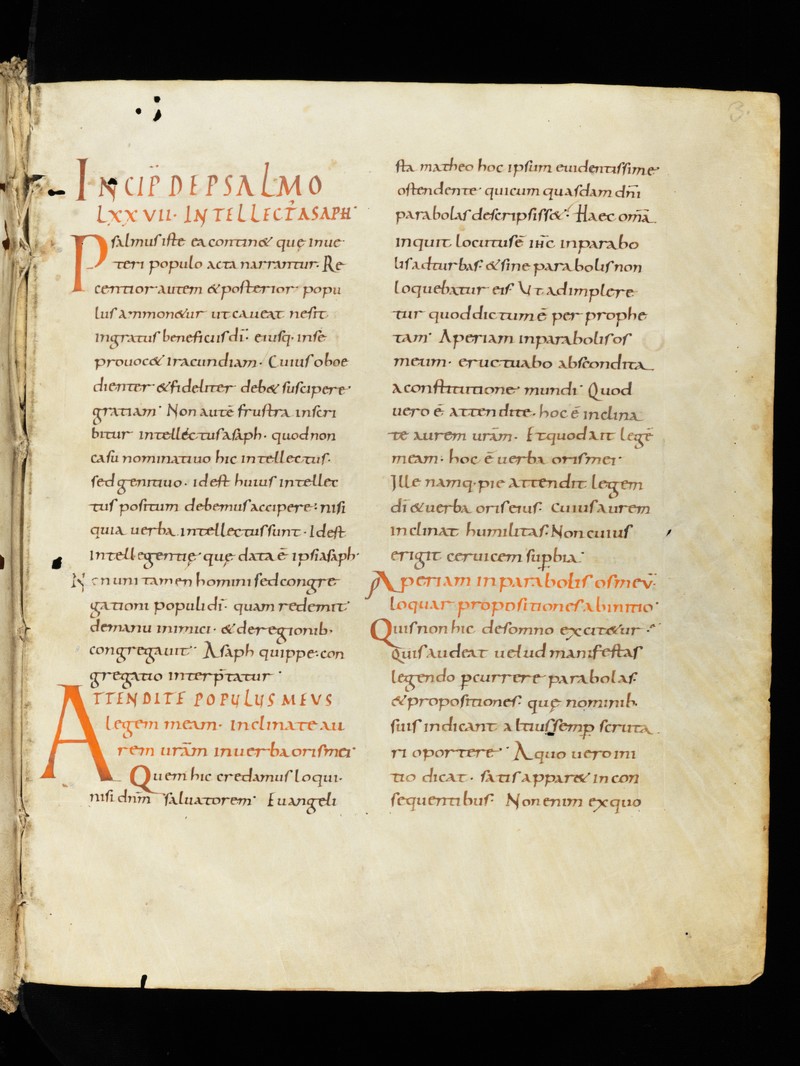 INCIP̄ DE PSALMO
LXXVII· INTELLECT̄ ASAPH·
Psalmus iste ea contin& quę in ue
teri populo acta narrantur· Re
centior autem & posterior popu
lus ammon&ur ut caueat ne sit
ingratus beneficiis dī· eiusq· in sē
prouoc& iracundiam· Cuius oboe
dienter & fideliter deb& suscipere
gratiam· Non autē frustra inscri
bitur intelléctus asaph· quod non
casu nominatiuo hic intellectus·
sed genitiuo· id est huius intellec
tus positum debemus accipere· nisi
quia uerba intellectus sunt· Id est
intellegentię quę data ē ipsi asaph·
Non uni tamen homini sed congre
gationi populi dī· quam redemit
de manu inimici· & de regionib·
congregauit· Asaph quippe con
gregatio interp̄tatur·
ATTENDITE POPULUS MEUS
legem meam· Inclinate au
rem urām in uerba oris mei·
Quem hic credamus loqui·
nisi dnm̄ saluatorem· Euangeli
sta matheo hoc ipsum euidentissime
ostendente· qui cum quasdam dnī
parabolas descripsiss&· Haec omā
inquit locutus ē ihc̄ in parabo
lis ad turbas· & sine parabolis non
loquebatur eis· Ut adimplere
tur quod dictum ē per prophe
tam· Aperiam in parabolis os
meum· eructuabo abscondita
a constitutione mundi· Quod
uero ē attendite· hoc ē inclina
te aurem urām· Et quod ait legē
meam· hoc ē uerba oris mei·
Ille namq· pie attendit legem
dī & uerba oris eius· Cuius aurem
inclinat humilitas· Non cuius
erigit ceruicem supbia·
Aperiam in parabolis os meū·
loquar propositiones ab initio·
Quis non hic de somno excit&ur·
Quis audeat uelud manifestas
legendo pcurrere parabolas·
& propositiones· quę nominib·
suis indicant altius semp scruta
ri oportere· A quo uero ini
tio dicat· satis appar& in con
sequentibus· Non enim ex quo